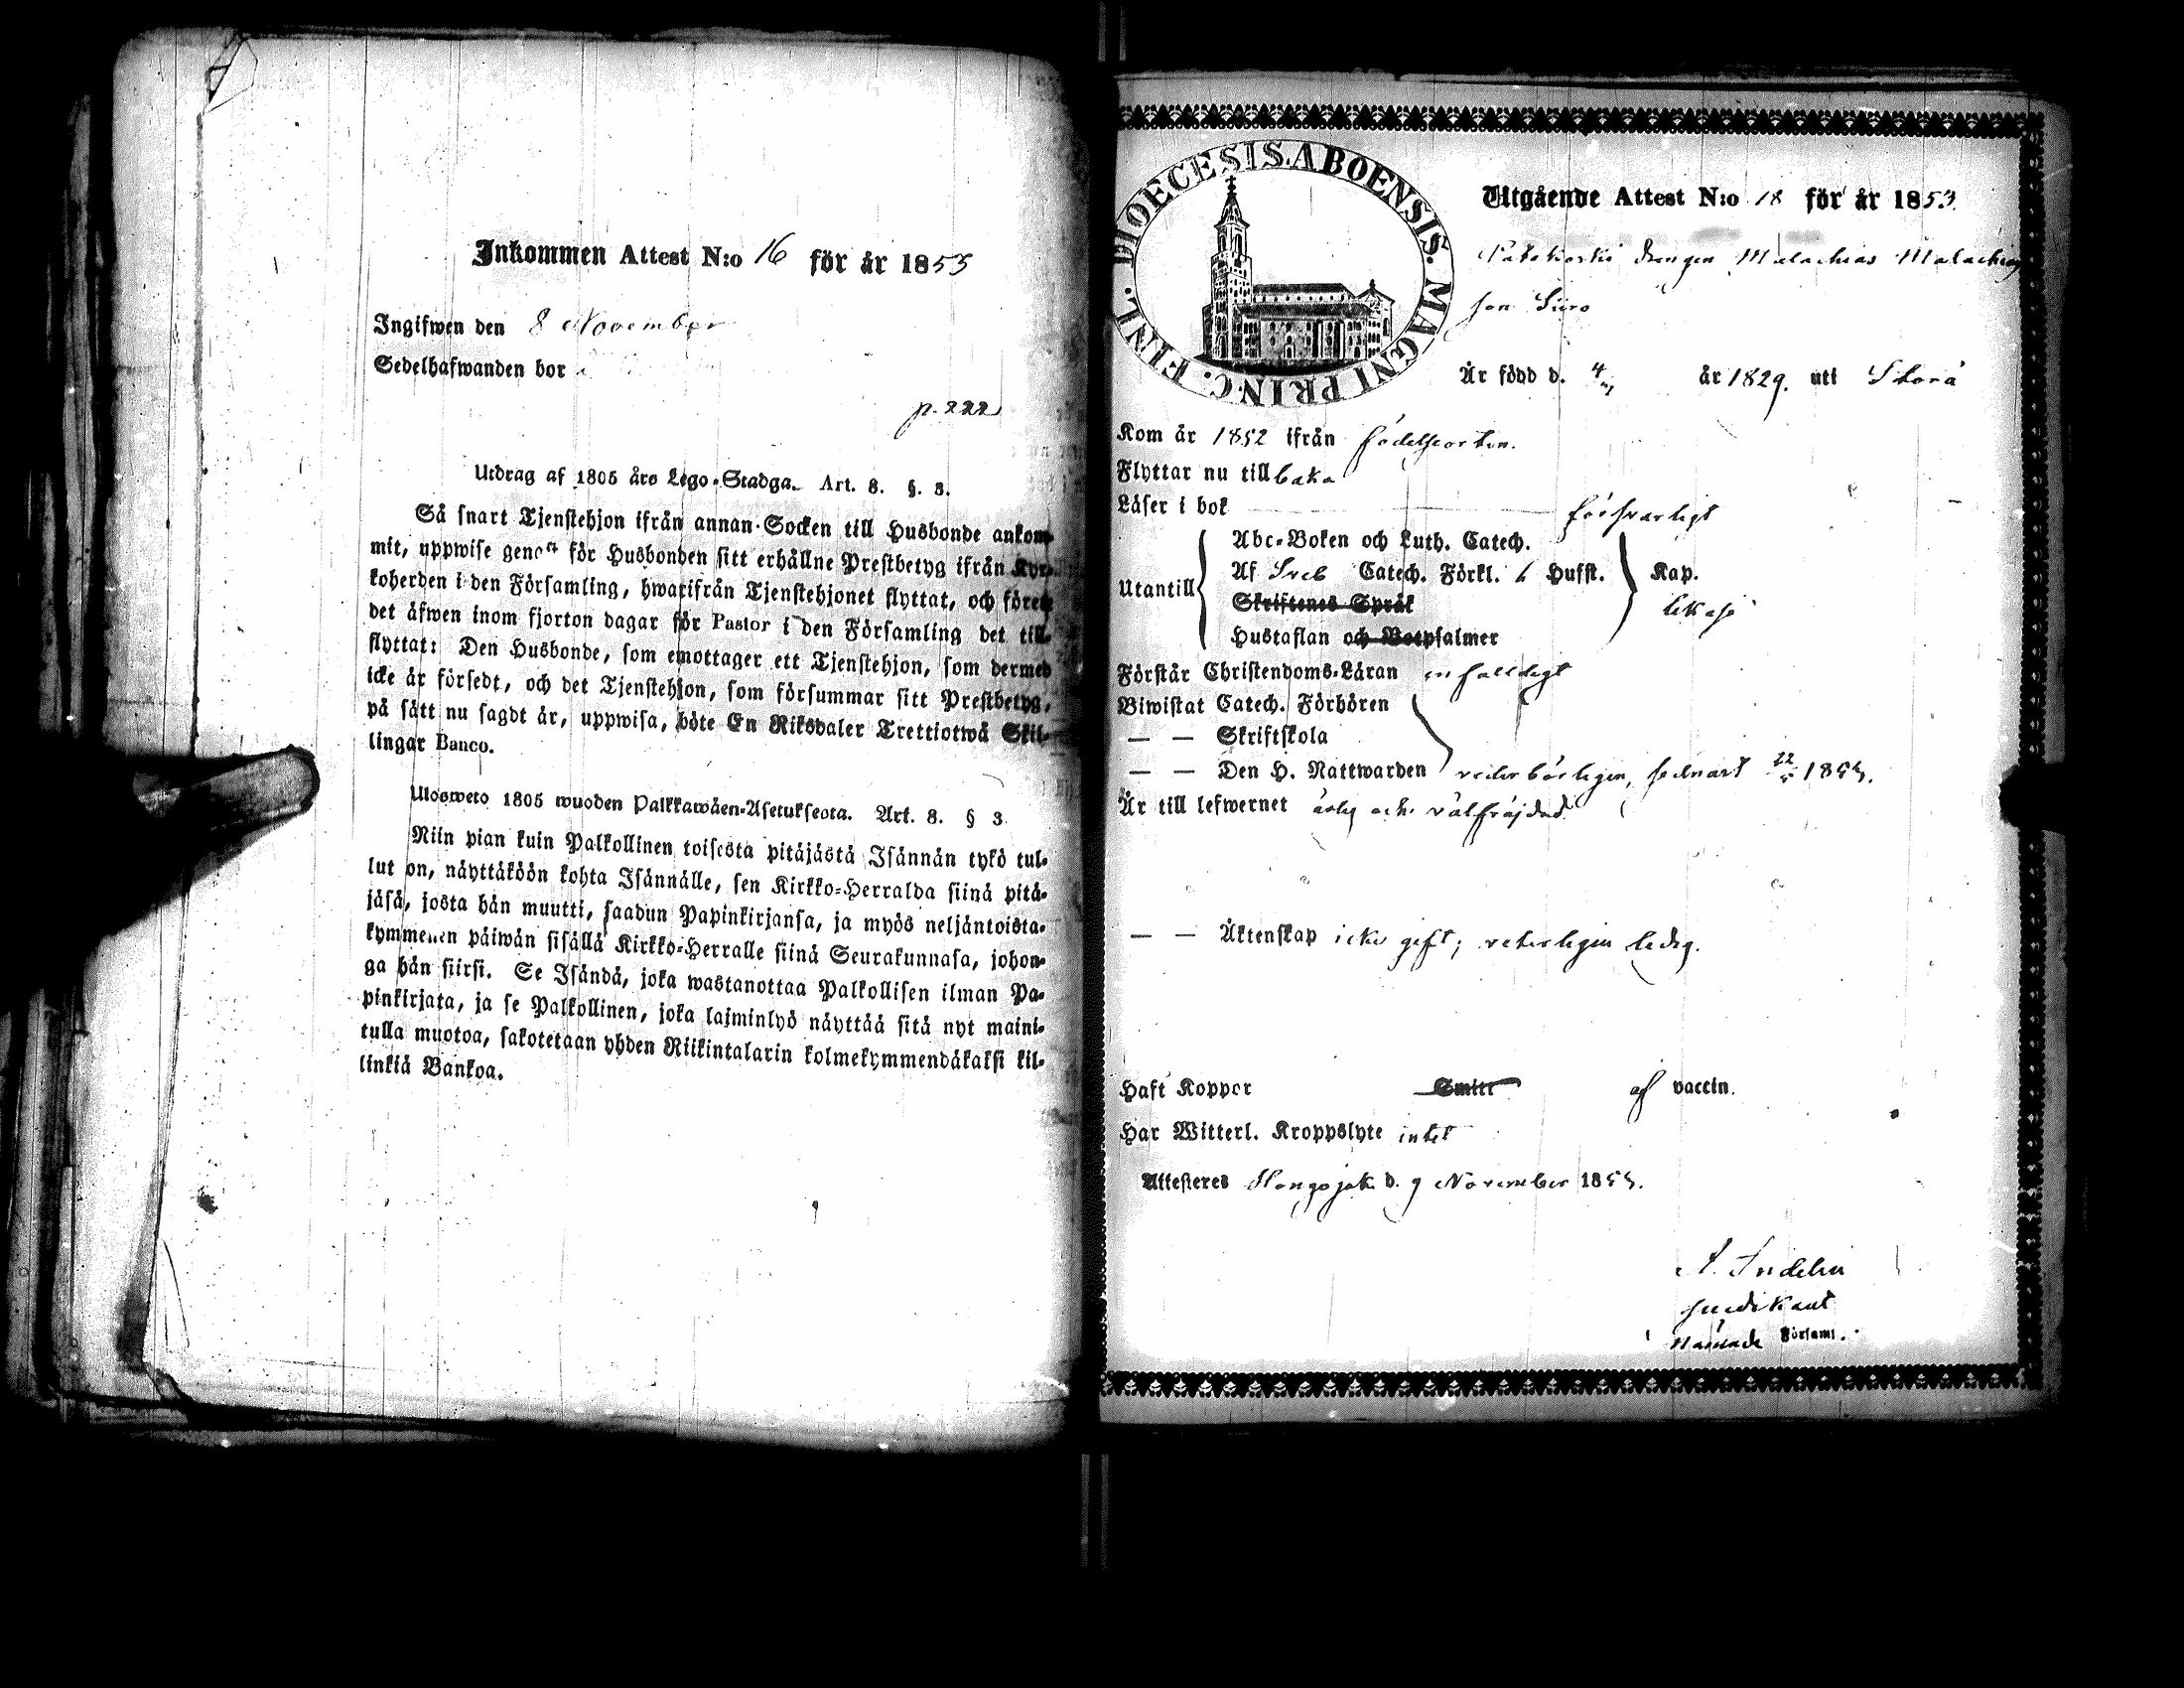 Inkommen Attest N:o 16 för år 1853
Ingifwen den 8 November
Sedelhafwanden bor
p. 222
Utdrag af 1805 års Lego-Stadga. Art. 8. §. 3.
Så snart Tjenstehjon ifrån annan Socken till Husbonde ankom-
mit, uppwise genast för Husbonden sitt erhållne Prestbetyg ifrån Kyr-
koherden i den Församling, hwarifrån Tjenstehjonet flyttat, och förete
det äfwen inom fjorton dagar för Pastor i den Församling det till-
flyttat: Den Husbonde, som emottager ett Tjenstehjon, som dermed
icke är försedt, och det Tjenstehjon, som försummar sitt Prestbetyg,
på sätt nu sagdt är, uppwisa, böte En Riksdaler Trettiotwå Skil-
lingar Banco.
Ulosweto 1805 wuoden Palkkawäen-Asetuksesta. Art. 8. § 3
Niin pian kuin Palkollinen toisesta pitäjästä Isännän tykö tul-
lut on, näyttäköön kohta Isännälle, sen Kirkko-Herralda siinä pitä-
jäsä, josta hän muutti, saadun Papinkirjansa, ja myös neljäntoista-
kymmenen päiwän sisällä Kirkko-Herralle siinä Seurakunnasa, johon-
ga hän siirsi. Se Isändä, joka wastanottaa Palkollisen ilman Pa-
pinkirjata, ja se Palkollinen, joka laiminlyö näyttää sitä nyt maini-
tulla muotoa, sakotetaan yhden Riikintalarin kolmekymmendäkaksi kil-
linkiä Bankoa.
DIOECESIS ABOENSIS. MAGNI PRINC. FINL.
Utgående Attest N:o 18 för år 1853
drengen Malachias Malachias
son Siiro
Är född d. 4 år 1829. uti Storå
Kom år 1852 ifrån födelseorten.
Flyttar nu tillbaka
Läser i bok försvarligt
Abc-Boken och Luth. Catech.
Utantill Af Sveb Catech. Förkl. 6 Hufst. Kap.
Skriftenes Språk
Hustaflan och Botpsalmer
Förstår Christendoms-Läran enfalldigt
Biwistat Catech. Förhören
— — Skriftskola
— — Den H. Nattwarden vederbörligen, sednast 22 1853.
Är till lefwernet ärlig och välfräjdad.
— — Äktenskap icke gift; veterligen ledig.
Haft Koppor Smitt af vaccin.
Har Witterl. Kroppslyte intet
Attesteres Hongojok. d. 9 November 1853.
Församl.